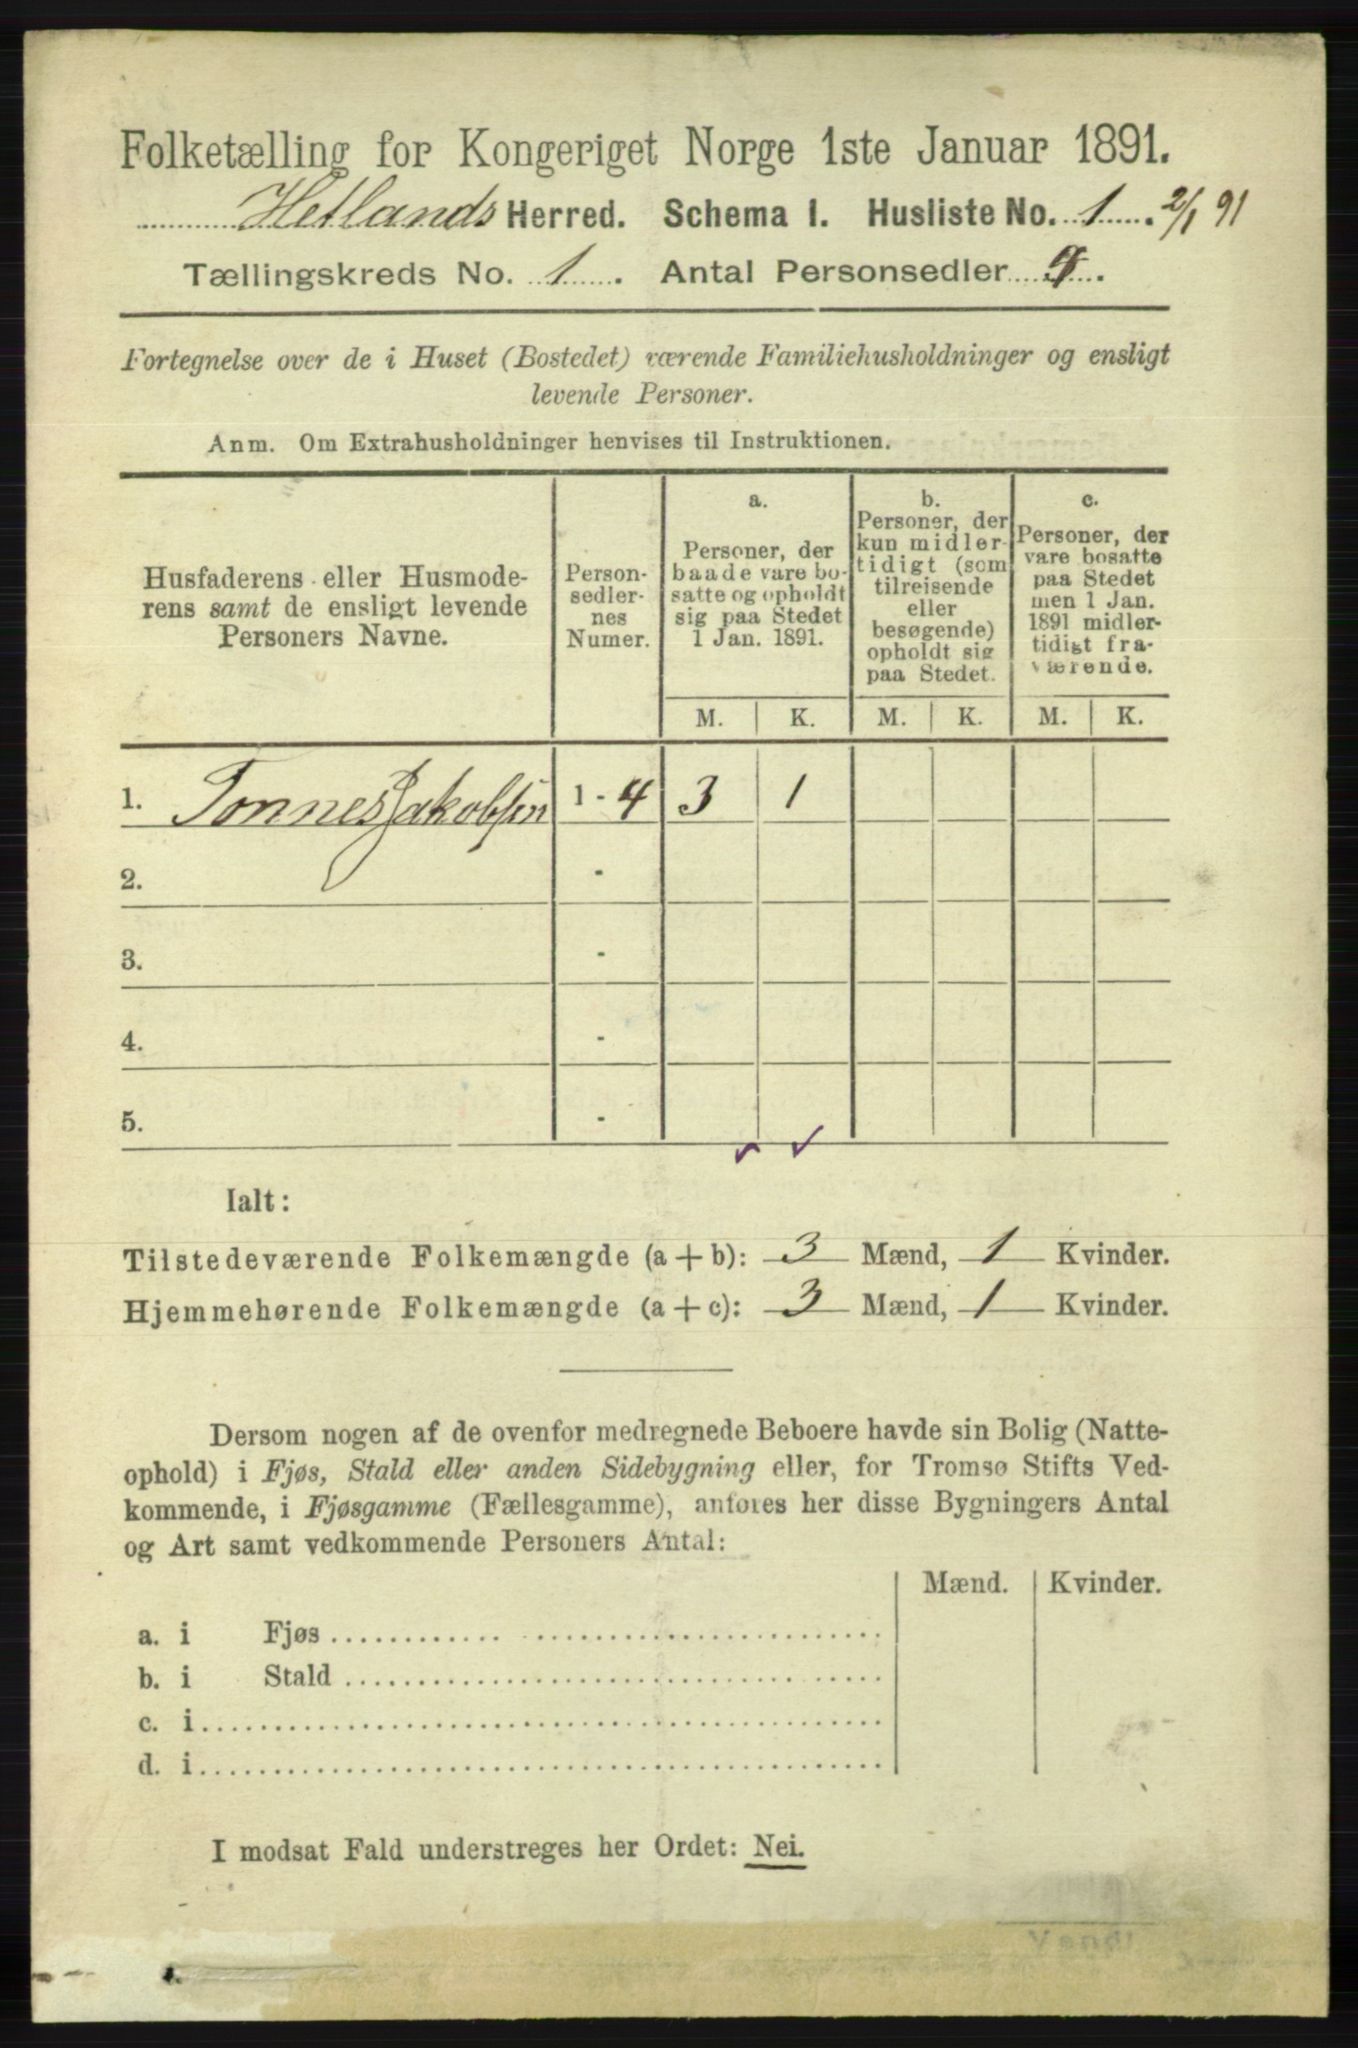 Folketælling for Kongeriget Norge 1ste Januar 1891.
Hetlands Herred. Schema I. Husliste No. 1. 2/1 91
Tællingskreds No. 1. Antal Personsedler 4.
Fortegnelse over de i Huset (Bostedet) værende Familiehusholdninger og ensligt
levende Personer.
Anm. Om Extrahusholdninger henvises til Instruktionen.
Husfaderens eller Husmode-
rens samt de ensligt levende
Personers Navne.
Person-
sedler-
nes
Numer.
a.
Personer, der
baade vare bo-
satte og opholdt
sig paa Stedet
1 Jan. 1891.
b.
Personer, der
kun midler-
tidigt (som
tilreisende
eller
besøgende)
opholdt sig
paa Stedet.
c.
Personer, der
vare bosatte
paa Stedet
men 1 Jan.
1891 midler-
tidigt fra-
værende.
M. K. M. K. M. K.
1. Tønnes Jakobsen 1 - 4 3 1
2. -
3. -
4. -
5. -
Ialt:
Tilstedeværende Folkemængde (a + b): 3 Mænd, 1 Kvinder.
Hjemmehørende Folkemængde (a + c): 3 Mænd, 1 Kvinder.
Dersom nogen af de ovenfor medregnede Beboere havde sin Bolig (Natte-
ophold) i Fjøs, Stald eller anden Sidebygning eller, for Tromsø Stifts Ved-
kommende, i Fjøsgamme (Fællesgamme), anføres her disse Bygningers Antal
og Art samt vedkommende Personers Antal:
Mænd. Kvinder.
a. i Fjøs
b. i Stald
c. i
d. i
I modsat Fald understreges her Ordet: Nei.